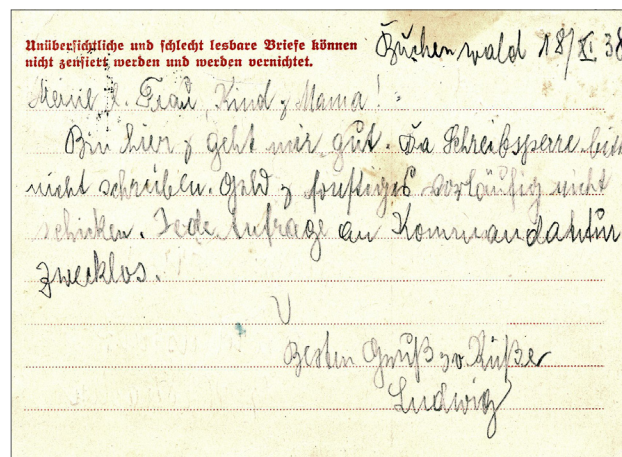 Unübersichtliche und schlecht lesbare Briefe können
nicht zensiert werden und werden vernichtet.
Buchenwald 18/XI. 38
Meine l. Frau, Kind & Mama!
Bin hier & geht mir gut. Da Schreibsperre bitte
nicht schreiben. Geld & sonstiges vorläufig nicht
schicken. Jede Anfrage an Kommandantur
zwecklos.
Besten Gruß & Küße
Ludwig